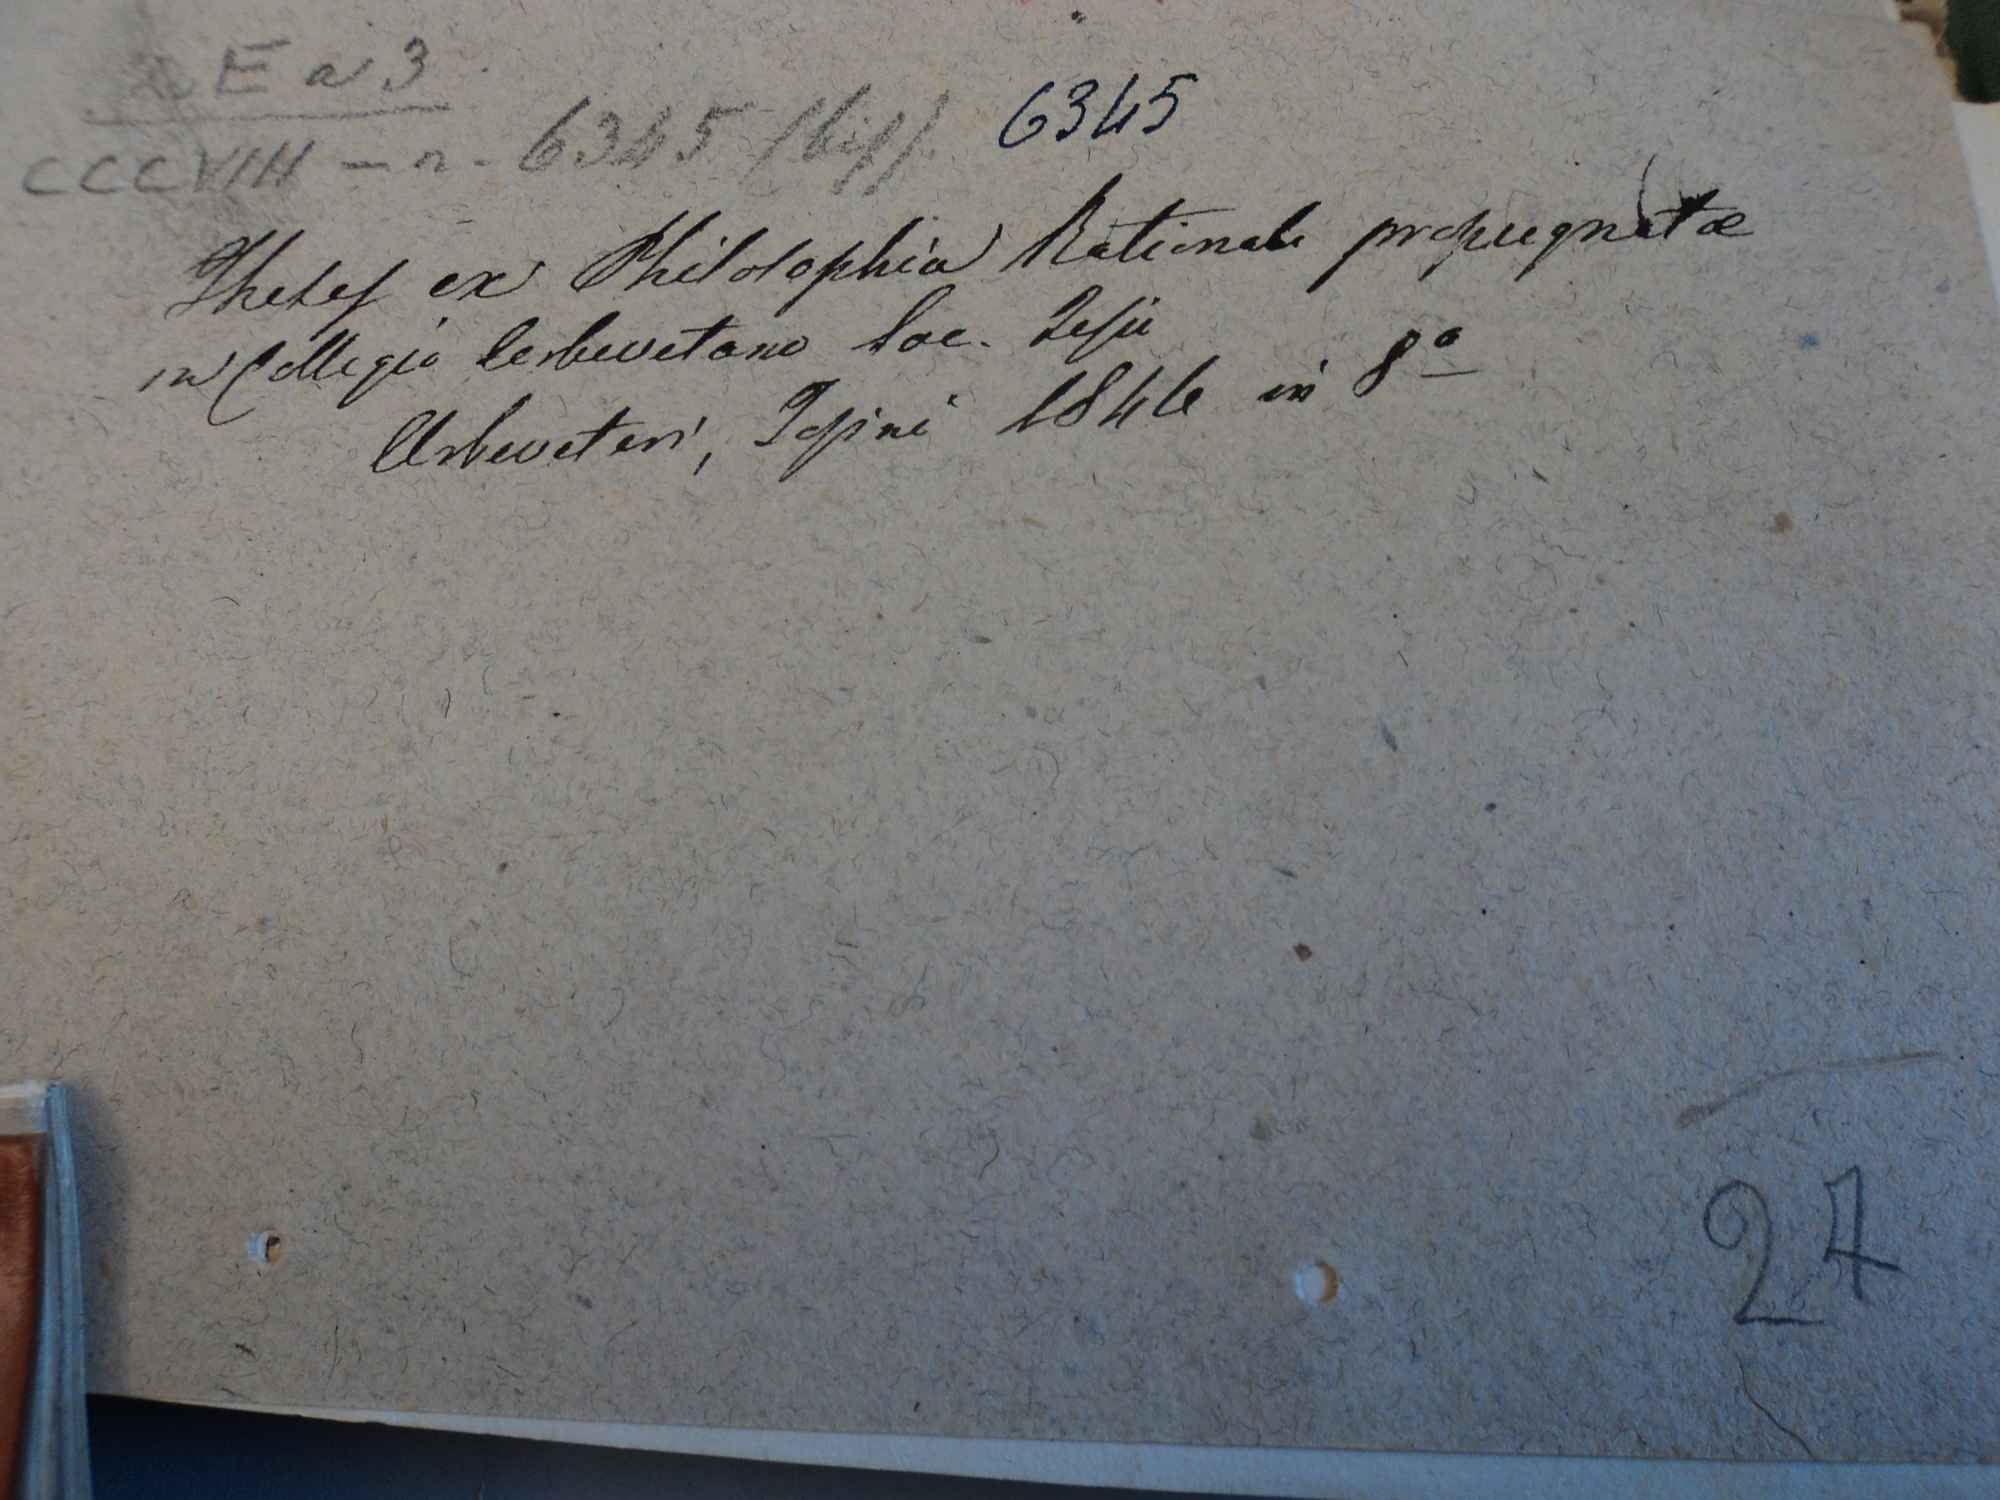 E a 3
CCCVIII - n. 6345 (bis) 6345
Theses ex Philosophia Rationale propugnatæ
in Collegio Urbevetano Soc. Jesu
Urbeveteri, Pompei 1846 in 8º
24